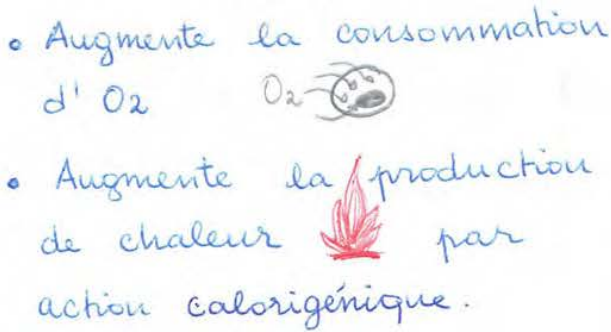 • Augmente la consommation
d' O2 O2
• Augmente la production
de chaleur par
action calorigénique.